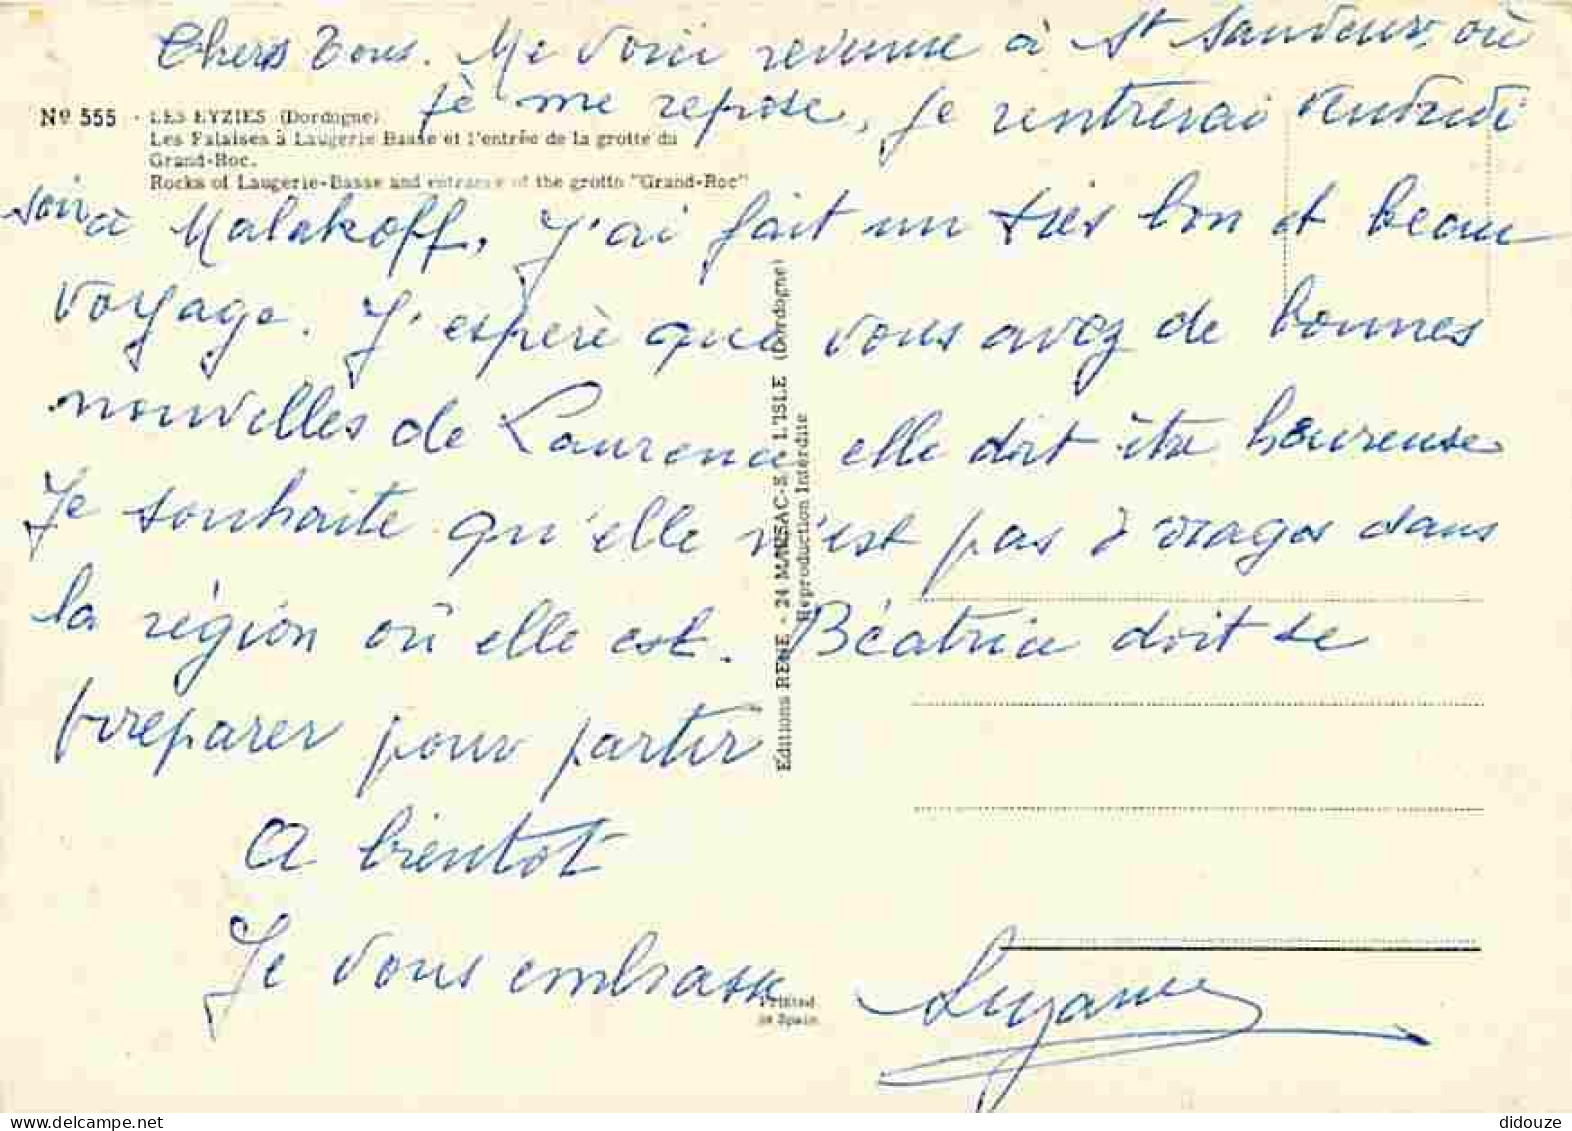 Chers Tous. Me voici revenue à St Sauveur, où
je me repose, je rentrerai vendredi
Nº 555 - LES EYZIES (Dordogne)
Les Falaises à Laugerie Basse et l'entrée de la grotte du
Grand-Roc.
Rocks of Laugerie-Basse and entrance of the grotto "Grand-Roc"
soir à Malakoff, J'ai fait un très bon et beau
voyage. J'espère que vous avez de bonnes
nouvelles de Laurence elle doit être heureuse
Je souhaite qu'elle n'est pas d'orages dans
la région où elle est. Béatrice doit se
preparer pour partir
A bientot
Je vous embrasse
Suzanne
Editions RENE - 24 MARSAC-S.-L'ISLE (Dordogne)
Reproduction Interdite
Printed
in Spain
didouze